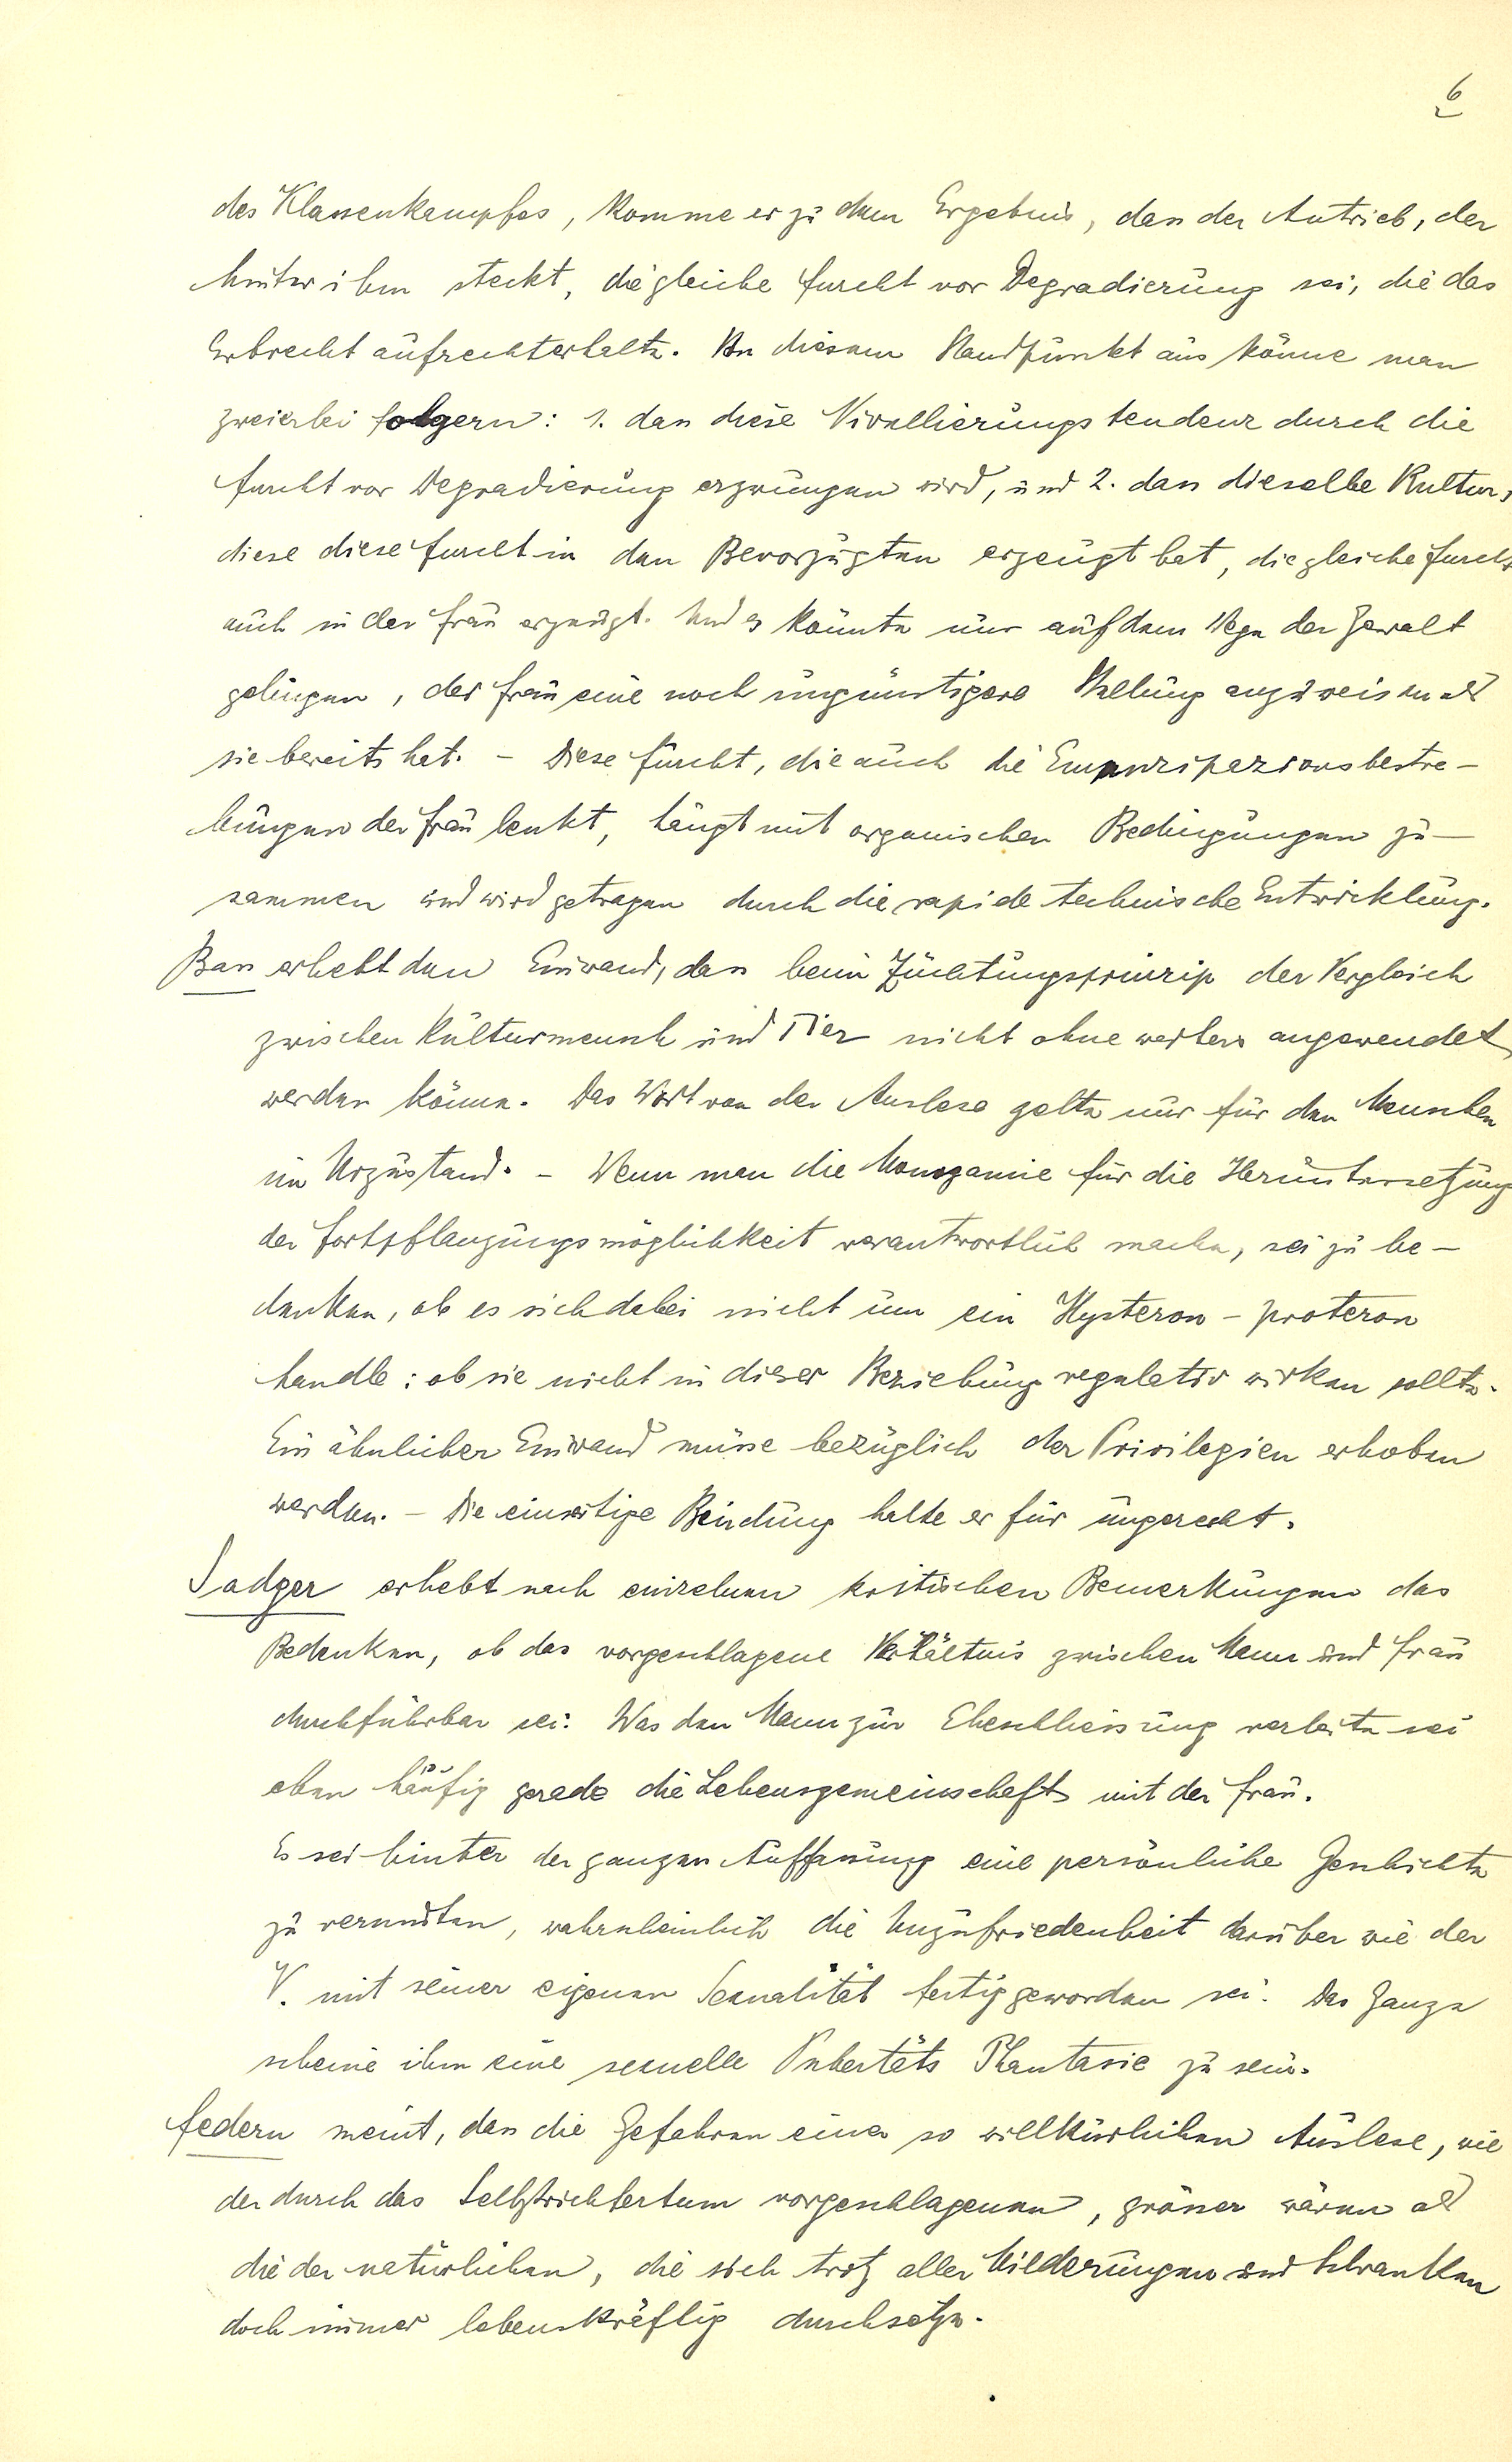 6
des Klassenkampfes, komme er zu dem Ergebnis, dass der Antrieb, der
hinter ihm steckt, die gleiche Furcht vor Degradierung sei, die das
Erbrecht aufrechterhalte. Von diesem Standpunkt aus könne man
zweierlei folgern: 1. dass diese Nivellierungstendenz durch die
Furcht vor Degradierung erzwungen wird, und 2. dass dieselbe Kultur,
diese diese Furcht in den Bevorzugten erzeugt hat, die gleiche Furcht
auch in der Frau erzeugt. Und es könnte nur auf dem Wege der Gewalt
gelingen, der Frau eine noch ungünstigere Stellung anzuweisen als
sie bereits hat. - Diese Furcht, die auch die Emanzipazionsbestre-
bungen der Frau lenkt, hängt mit organischen Bedingungen zu-
sammen und wird getragen durch die rapide technische Entwicklung.
Bass erhebt den Einwand, dass beim Züchtungsprinzip der Vergleich
zwischen Kulturmensch und Tier nicht ohne weiters angewendet
werden könne. Das Wort von der Auslese gelte nur für den Menschen
im Urzustand. - Wenn man die Monogamie für die Heruntersetzung
der Fortpflanzungsmöglichkeit verantwortlich mache, sei zu be-
denken, ob es sich dabei nicht um ein Hysteron-proteron
handle: ob sie nicht in dieser Beziehung regulativ wirken sollte.
Ein ähnlicher Einwand müsse bezüglich der Privilegien erhoben
werden. - Die einseitige Bindung halte er für ungerecht.
Sadger erhebt nach einzelnen kritischen Bemerkungen das
Bedenken, ob das vorgeschlagene Verhältnis zwischen Mann und Frau
durchführbar sei. Was den Mann zur Eheschliessung verleite sei
eben häufig gerade die Lebensgemeinschaft mit der Frau.
Es sei hinter der ganzen Auffassung eine persönliche Geschichte
zu vermuten, wahrscheinlich die Unzufriedenheit darüber wie der
V. mit seiner eigenen Sexualität fertig geworden sei. Das Ganze
scheine ihm eine sexuelle Pubertäts Phantasie zu sein.
Federn meint, dass die Gefahren einer so willkürlichen Auslese, wie
der durch das Selbstrichtertum vorgeschlagenen, grösser wären als
die der natürlichen, die sich trotz aller Milderungen und Schranken
doch immer lebenskräftig durchsetze.